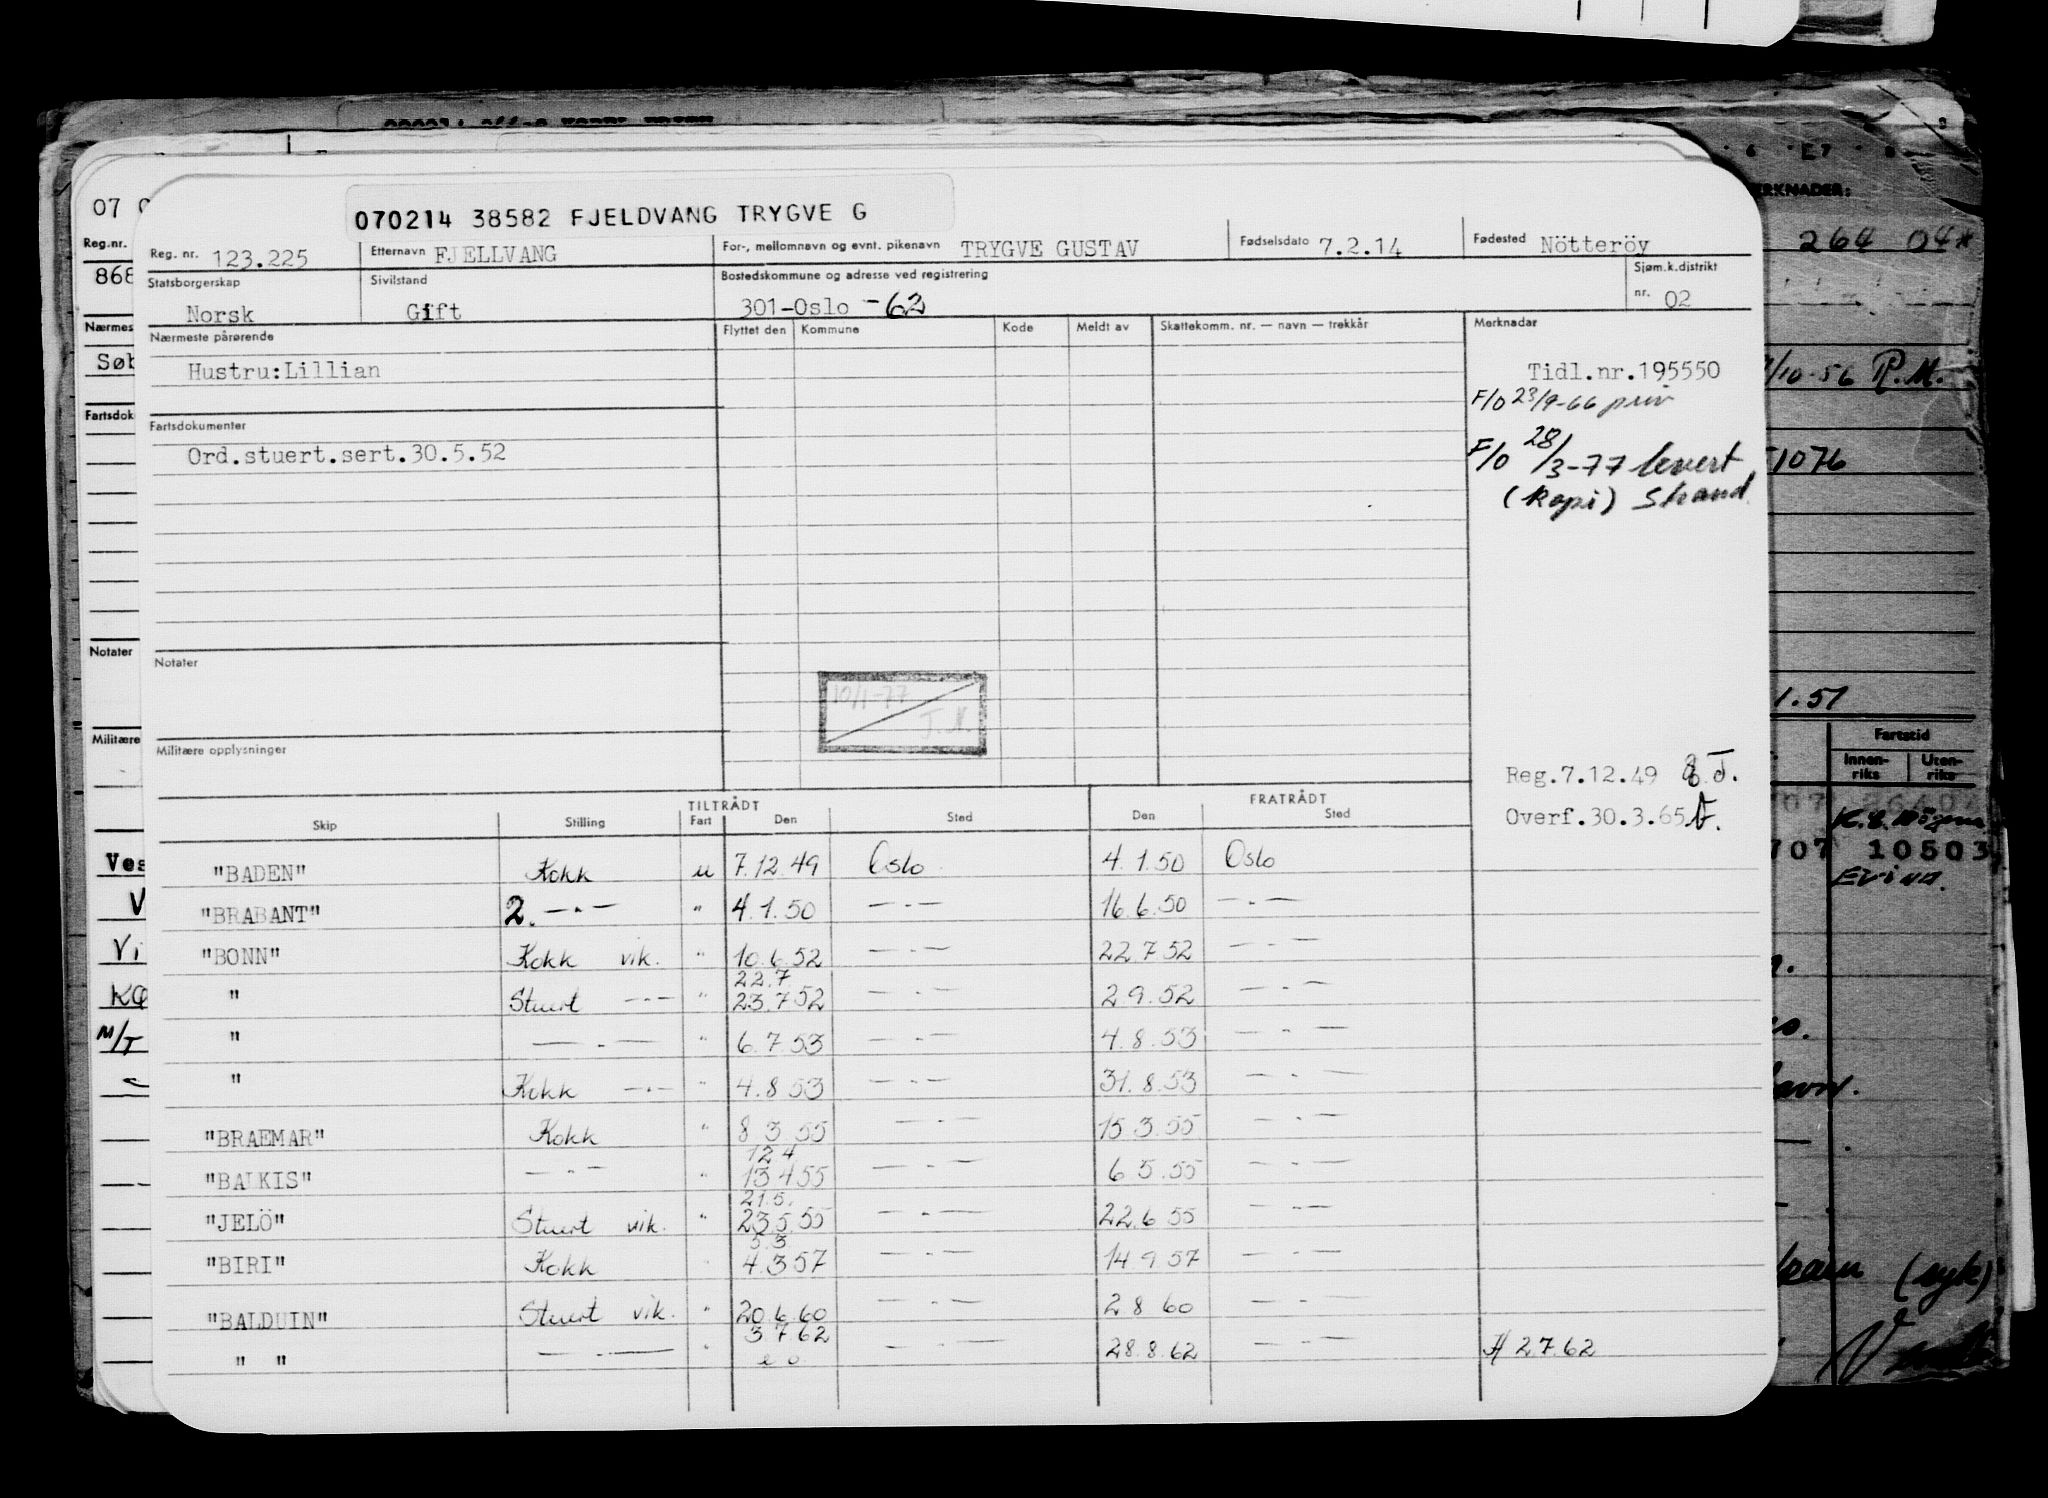 070214 38582 FJELDVANG TRYGVE G
Reg. nr. 123.225 Etternavn FJELLVANG For-, mellomnavn og evnt. pikenavn TRYGVE GUSTAV Fødselsdato 7.2.14 Fødested Nötteröy
Statsborgerskap Norsk Sivilstand Gift Bostedskommune og adresse ved registrering 301-Oslo -62 Sjøm.k.distrikt nr. 02
Nærmeste pårørende Flyttet den Kommune Kode Meldt av Skattekomm. nr. — navn — trekkår Merknadar
Hustru:Lillian Tidl.nr.195550
F/O 23/9-66 priv
Fartsdokumenter
Ord.stuert.sert.30.5.52 F/O 28/3-77 levert
(Kopi) Strand
Notater
10/1-77
J.M.
Militære opplysninger
Reg.7.12.49
Overf.30.3.65
TILTRÅDT FRATRÅDT
Skip Stilling Fart Den Sted Den Sted
"BADEN" Kokk u 7.12.49 Oslo 4.1.50 Oslo
"BRABANT" 2. —·— " 4.1.50 —·— 16.6.50 —·—
"BONN" Kokk vik. " 10.6.52 —·— 22.7.52 —·—
22.7
" Stuert —·— " 23.7.52 —·— 2.9.52 —·—
" —·— " 6.7.53 —·— 4.8.53 —·—
" Kokk —·— " 4.8.53 —·— 31.8.53 —·—
"BRAEMAR" Kokk " 8.3.55 —·— 15.3.55 —·—
12.4
"BALKIS" —·— " 13.4.55 —·— 6.5.55 —·—
21.5.
"JELÖ" Stuert vik. " 23.5.55 —·— 22.6.55 —·—
3.3
"BIRI" Kokk " 4.3.57 —·— 14.9.57 —·—
"BALDUIN" Stuert vik. " 20.6.60 —·— 2.8.60 —·—
" " —·— " 3.7.62 —·— 28.8.62 —·— A 2.7.62
07
Reg.nr.
868
Nærmes
Søb
Fartsdok
Notater
Militære
Ves
V
Vi
KO
M/T
ERKNADER:
264 04*
/10-56 R.M.
1076
1.51
Fartstid
Innenriks Utenriks
707 10503
(syk)